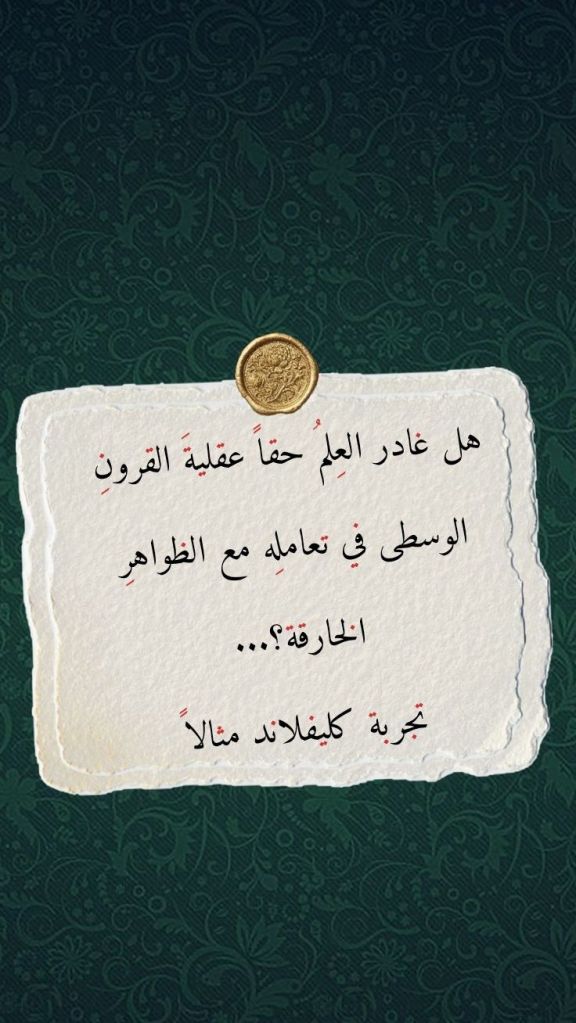 هل غادر العِلمُ حقاً عقليةَ القرونِ
الوسطى في تعاملِه مع الظواهرِ
الخارقة؟...
تجربة كليفلاند مثالاً